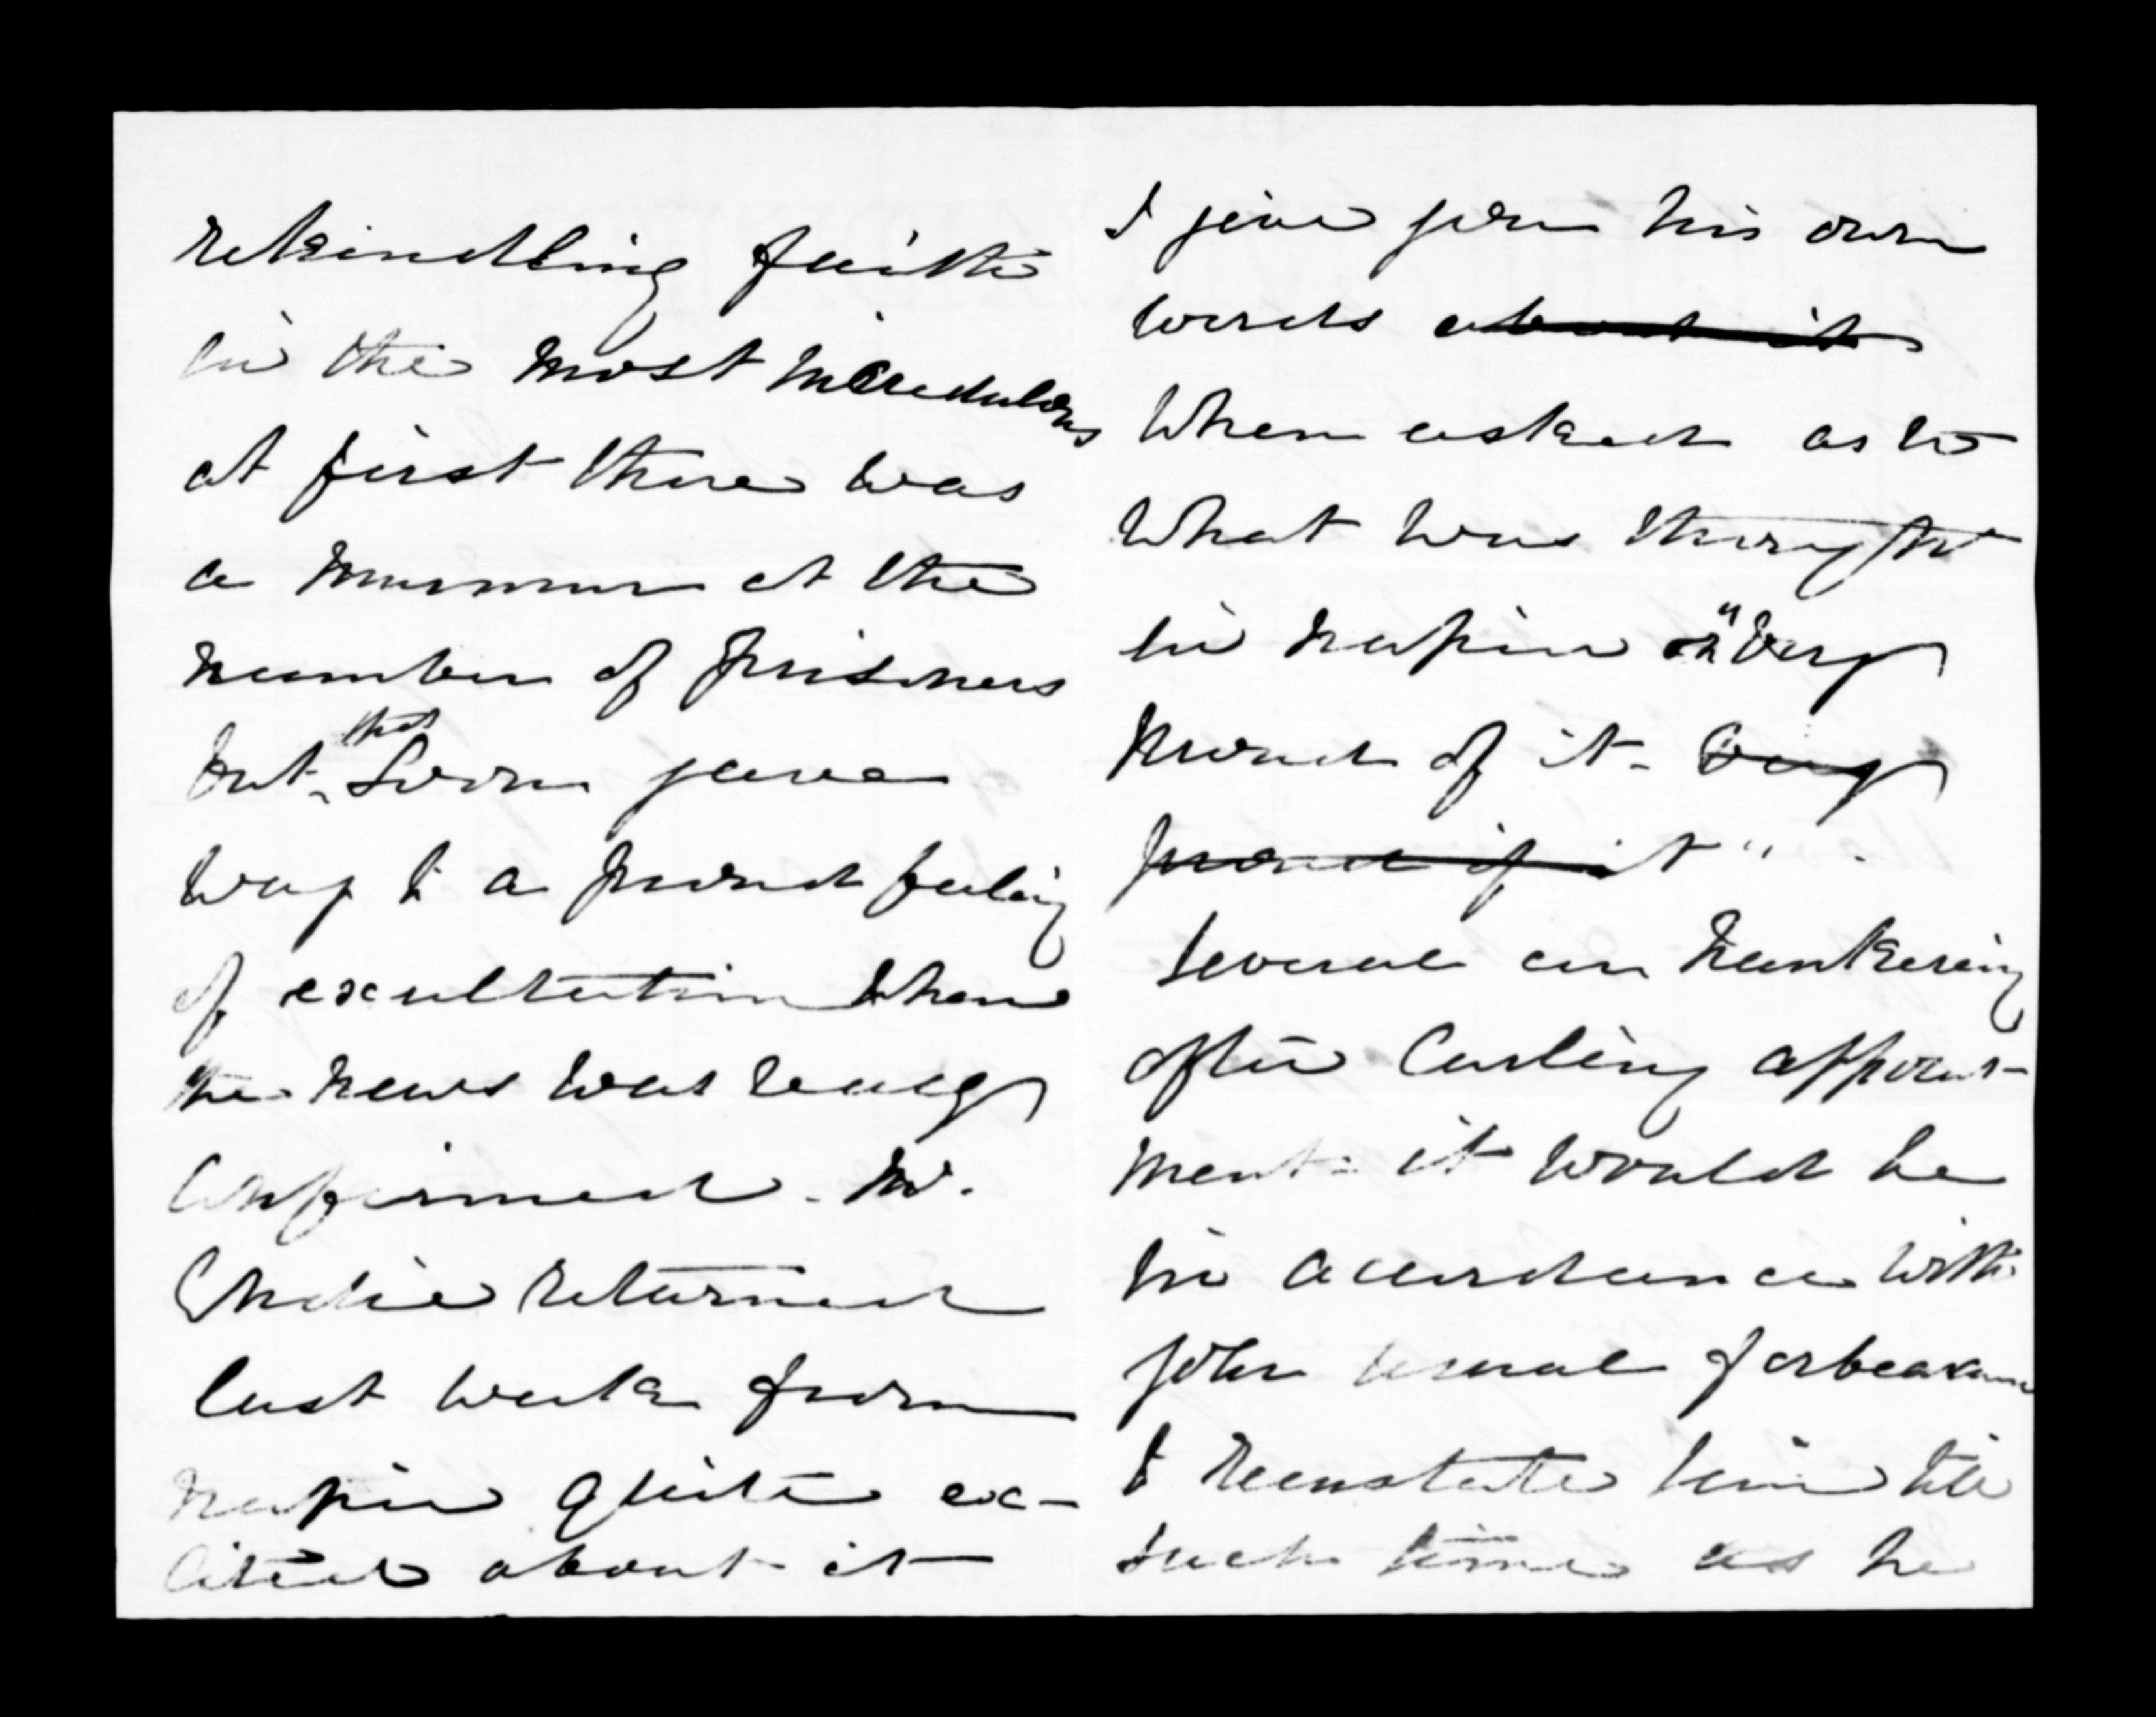 rekindling faith
in the most incredulous
at first there was
a murmur at the
number of prisoners
but that soon gave
way to a proud feeling
of exultation when
the news was really
confirmed. Mr.
Ondie returned
last week from
napier quite ex-
cited about it
I give you his own
words about it
When asked as to
what was thought
in napier "Very
proud of it - Very
proud of it".
Several are hankering
after Curling appoint-
ment it would be
in accordance with
your usual forbearance
to reenstate him till
such time as he